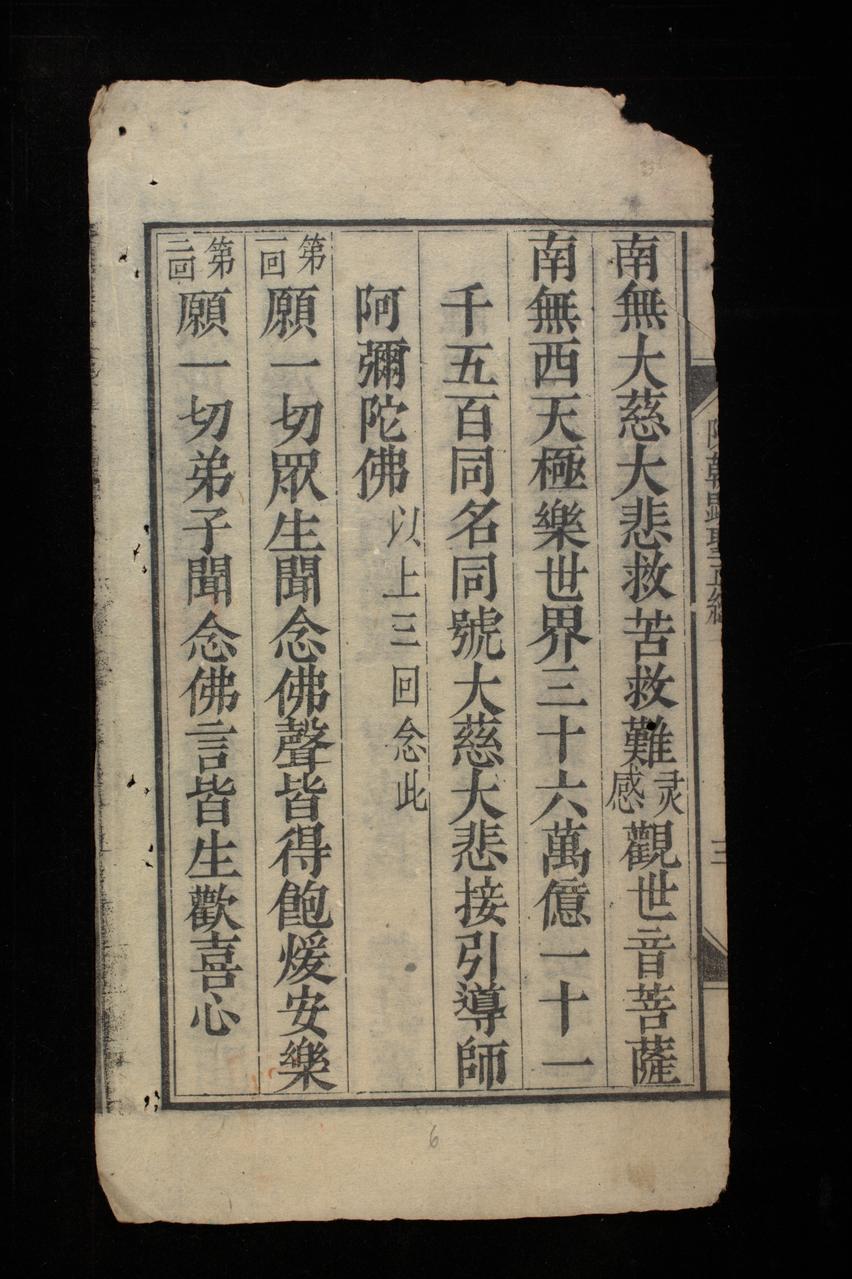 南無大慈大悲救苦救難灵感觀世音菩薩
南無西天極樂世界三十六萬億一十一
千五百同名同號大慈大悲接引導師
阿彌陀佛以上三回念此
第一回願一切眾生聞念佛聲皆得飽煖安樂
第二回願一切弟子聞念佛言皆生歡喜心
三
6